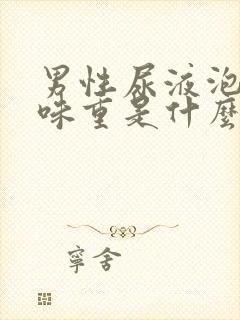 男性尿液泡
味重是什麼
寧舍